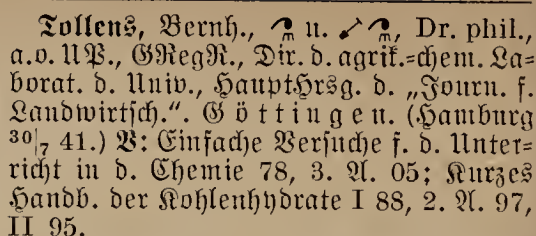 Tollens, Bernh., u. Dr. phil.,
a.o. UP., GRegR., Dir. d. agrik.=chem. La=
borat. d. Univ., HauptHrsg. d. „Journ. f.
Landwirtsch.“. Göttingen. (Hamburg
30|7 41.) V: Einfache Versuche f. d. Unter=
richt in d. Chemie 78, 3. A. 05; Kurzes
Handb. der Kohlenhydrate I 88, 2. A. 97,
II 95.